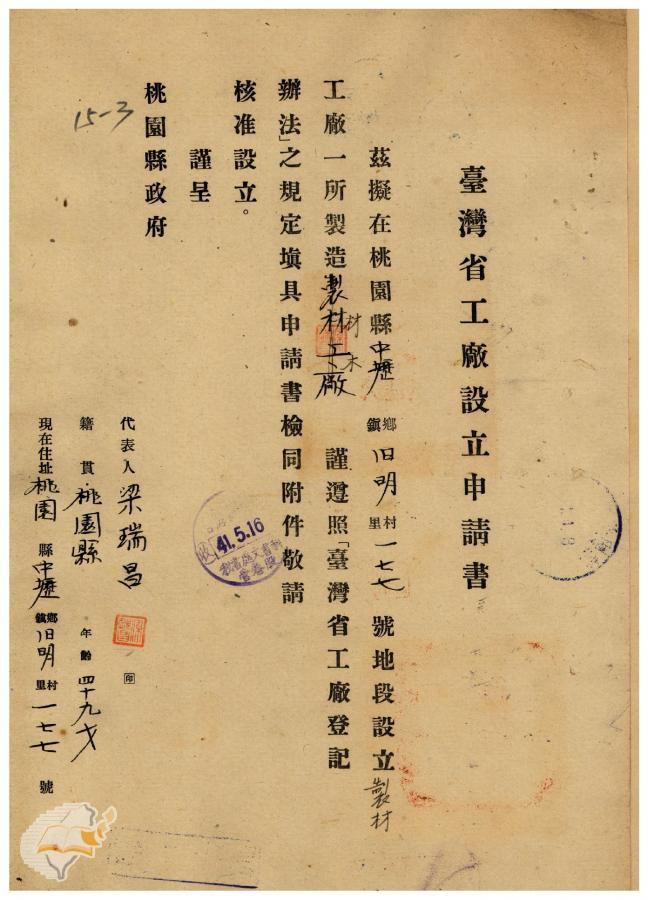 臺灣省工廠設立申請書
茲擬在桃園縣中壢鄉鎮旧明村里一七七號地段設立製材
工廠一所製造製材工廠謹遵照「臺灣省工廠登記
材木
辦法」之規定填具申請書檢同附件敬請
核准設立。
謹呈
桃園縣政府
15-3
代表人梁瑞昌印
籍貫桃園縣年齡四十九才
現在住址桃園縣中壢鄉鎮旧明村里一七七號
41.5.16